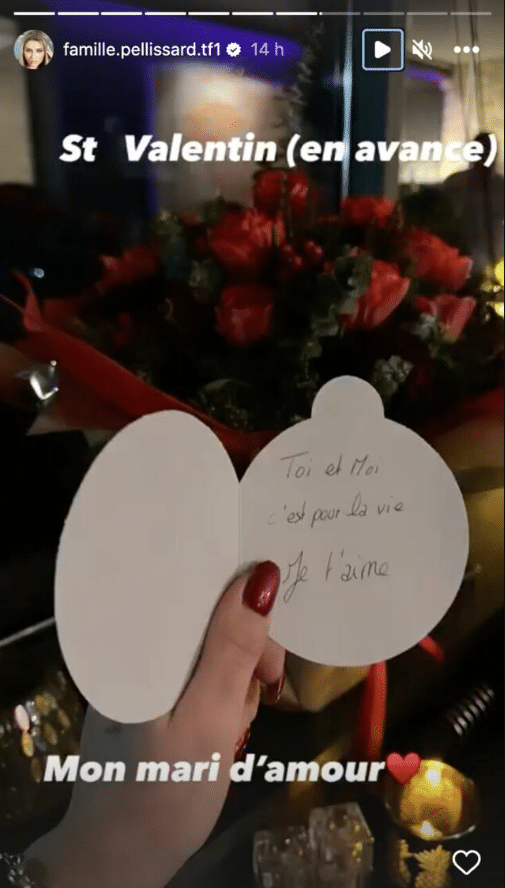 famille.pellissard.tf1 14 h
St Valentin (en avance)
Toi et Moi
c'est pour la vie
Je t'aime
Mon mari d'amour❤️